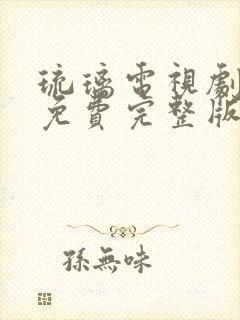 琉璃電視劇
免費完整版
孫無味